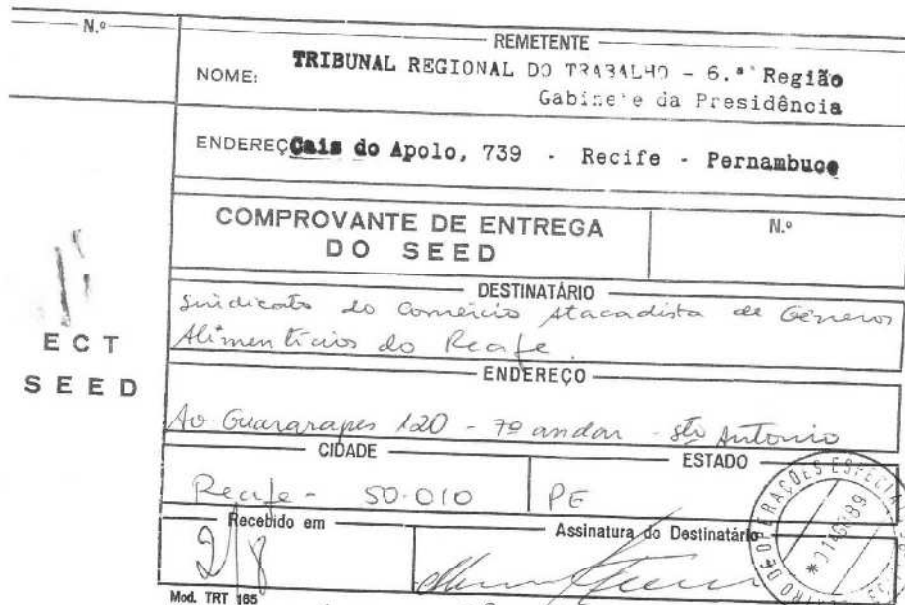 N.º
REMETENTE
NOME: TRIBUNAL REGIONAL DO TRABALHO - 6.ª Região
Gabinete da Presidência
ENDEREÇO Cais do Apolo, 739 - Recife - Pernambuco
COMPROVANTE DE ENTREGA
DO SEED
N.º
ECT
SEED
DESTINATÁRIO
Sindicato do Comércio Atacadista de Gêneros
Alimentícios do Recife.
ENDEREÇO
Av Guararapes 120 - 7º andar - Sto Antonio
CIDADE
ESTADO
Recife - 50.010
PE
Recebido em
Assinatura do Destinatário
2/8
Mod. TRT 165
DE OPERAÇÕES